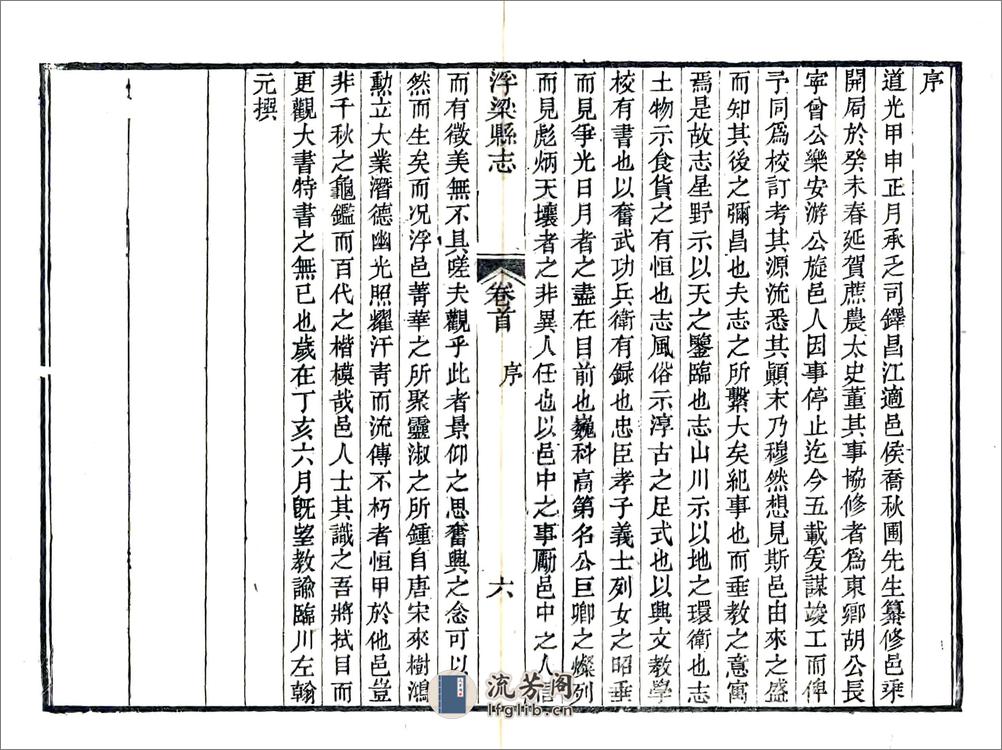 序
道光甲申正月承乏司鐸昌江適邑侯喬秋圃先生纂修邑乘
開局於癸未春延賀蔗農太史董其事協修者爲東鄉胡公長
寧曾公樂安游公旋邑人因事停止迄今五載爰謀竣工而俾
予同爲校訂考其源流悉其顛末乃穆然想見斯邑由來之盛
而知其後之彌昌也夫志之所繫大矣紀事也而垂教之意寓
焉是故志星野示以天之鑒臨也志山川示以地之環衛也志
土物示食貨之有恒也志風俗示淳古之足式也以興文教學
校有書也以奮武功兵衛有録也忠臣孝子義士列女之昭垂
而見爭光日月者之盡在目前也巍科高第名公巨卿之燦列
而見彪炳天壤者之非異人任也以邑中之事勵邑中之人信
浮梁縣志 卷首 序 六
而有徵美無不具嗟夫觀乎此者景仰之思奮興之念可以
然而生矣而况浮邑菁華之所聚靈淑之所鍾自唐宋來樹鴻
勳立大業潛德幽光照耀汗青而流傳不朽者恒甲於他邑豈
非千秋之龜鑑而百代之楷模哉邑人士其識之吾將拭目而
更觀大書特書之無已也歲在丁亥六月旣望教諭臨川左翰
元撰
流芳阁
lfglib.cn